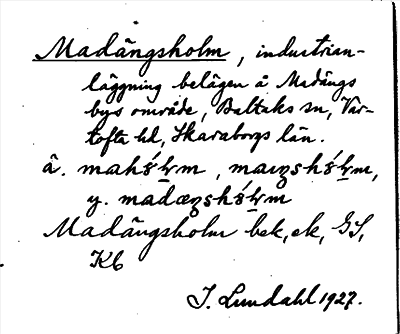 Madängsholm, industrian-
läggning belägen å Madängs
bys område, Baltaks sn, Var-
tofta hd, Skaraborgs län.
ä.
y.
Madängsholm bek, ek, GS,
Kb
I. Lundahl 1927.